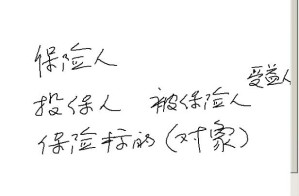 保险人
受益人
投保人 被保险人
保险标的(对象)